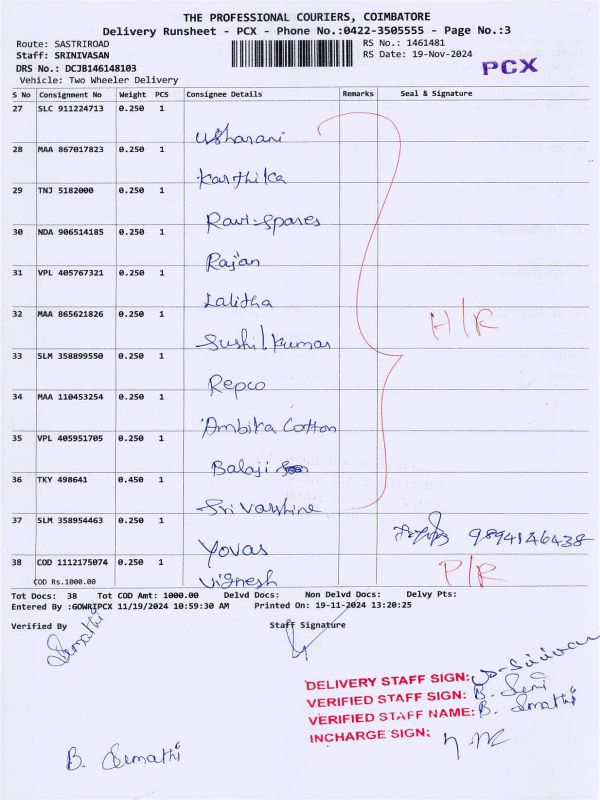 THE PROFESSIONAL COURIERS, COIMBATORE
Delivery Runsheet - PCX - Phone No.:0422-3505555 - Page No.:3
Route: SASTRIROAD RS No.: 1461481
Staff: SRINIVASAN RS Date: 19-Nov-2024
DRS No.: DCJB146148103 PCX
Vehicle: Two Wheeler Delivery
S No Consignment No Weight PCS Consignee Details Remarks Seal & Signature
27 SLC 911224713 0.250 1
Usharani
28 MAA 867017823 0.250 1
Karthika
29 TNJ 5182000 0.250 1
Ravi-Spares
30 NDA 906514185 0.250 1
Rajan
31 VPL 405767321 0.250 1
Lalitha
32 MAA 865621826 0.250 1
H/R
Sushil Kumar
33 SLM 358899550 0.250 1
Repco
34 MAA 110453254 0.250 1
Ambika Cotton
35 VPL 405951705 0.250 1
Balaji
36 TKY 498641 0.450 1
Srivarshine
37 SLM 358954463 0.250 1
9894146438
Yovas
38 COD 1112175074 0.250 1 P/R
COD Rs.1000.00 Vignesh
Tot Docs: 38 Tot COD Amt: 1000.00 Delvd Docs: Non Delvd Docs: Delvy Pts:
Entered By :GOWRIPCX 11/19/2024 10:59:30 AM Printed On: 19-11-2024 13:20:25
Verified By Staff Signature
DELIVERY STAFF SIGN:
VERIFIED STAFF SIGN: B.
VERIFIED STAFF NAME: B.
INCHARGE SIGN:
B. Semathi